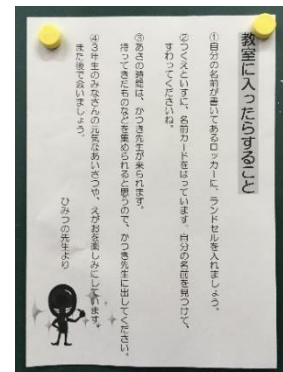 教室に入ったらすること
①自分の名前が書いてあるロッカーに、ランドセルを入れましょう。
②つくえといすに、名前カードをはっています。自分の名前を見つけて、
すわってくださいね。
③あさの時間は、かつき先生が来られます。
持ってきたものなどを集められると思うので、かつき先生に出してください。
④3年生のみなさんの元気なあいさつや、えがおを楽しみにしています。
また後で会いましょう。
ひみつの先生より